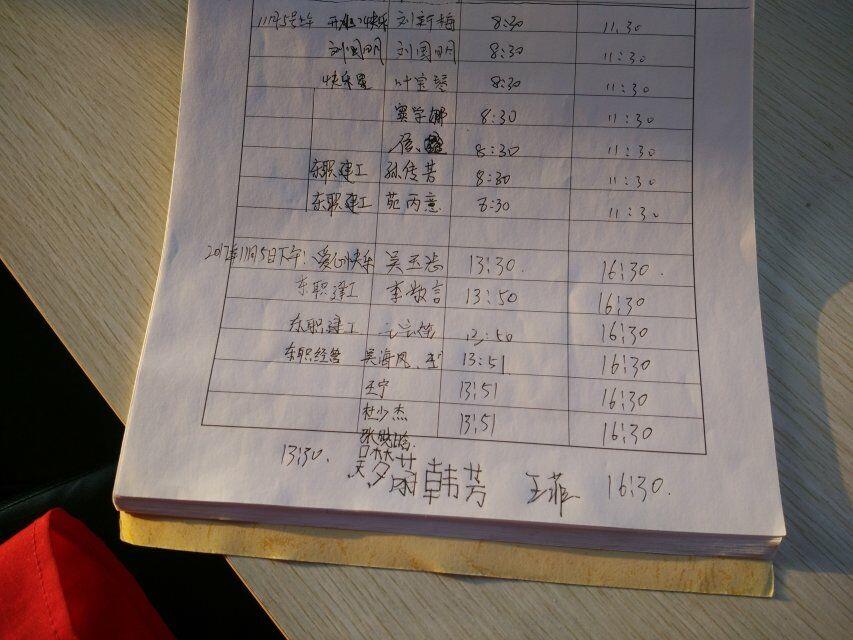 11月5号上午 开心快乐 刘新梅 8:30 11:30
刘国明 刘国明 8:30 11:30
快乐星 叶宝琴 8:30 11:30
窦学娜 8:30 11:30
8:30 11:30
东职建工 孙传芳 8:30 11:30
东职建工 苑丙意 8:30 11:30
2017年11月5日下午: 爱心快乐 吴玉志 13:30. 16:30.
东职建工 李敬言 13:50 16:30
东职建工 12:50 16:30
东职经营 吴海凤、 13:51 16:30
王宁 13:51 16:30
杜少杰 13:51 16:30
13:30. 韩芳 王菲 16:30.